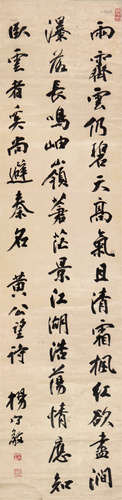 雨霽雲仍碧天高氣且清霜楓紅欲盡澗
瀑落長鳴岫嶺蒼茫景江湖浩蕩情應知
臥雲者奚尚避秦名 黃公望詩 楊守敬